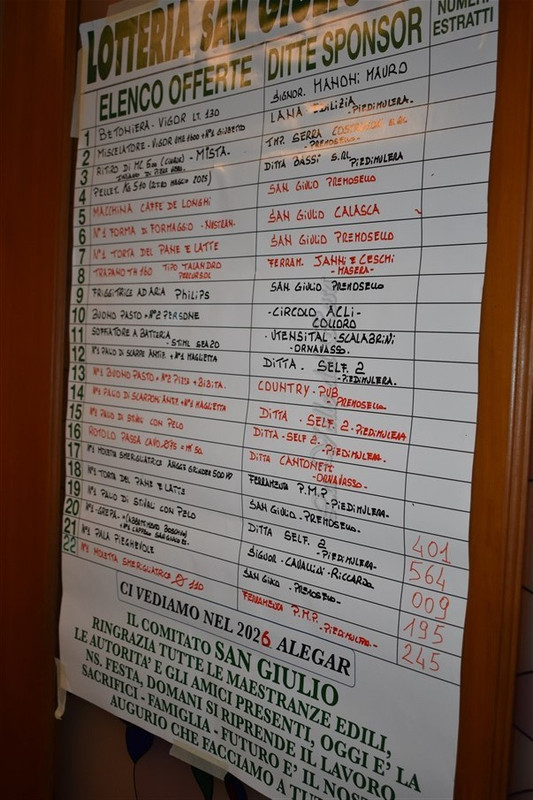 LOTTERIA SAN GIULIO
ELENCO OFFERTE DITTE SPONSOR NUMERI ESTRATTI
1 BETONIERA - VIGOR LT. 130 SIGNOR. MANONI MAURO
2 MISCELATORE - VIGOR + N°1 GIUBETTO LANA EDILIZIA - PIEDIMULERA.
3 RITIRO DI MC 5 - MISTA. IMP. SERRA S.R.L. - PREMOSELLO -
4 PELLET. DITTA BASSI S.R.L. PIEDIMULERA
5 MACCHINA CAFFE DE LONGHI SAN GIULIO PREMOSELLO
6 N°1 FORMA DI FORMAGGIO - NOSTRAN. SAN GIULIO CALASCA
7 N°1 TORTA DEL PANE E LATTE SAN GIULIO PREMOSELLO
8 TRAPANO TH 160 TIPO FERRAM. JANNI E CESCHI - MASERA -
9 FRIGGITRICE AD ARIA PHILIPS SAN GIULIO PREMOSELLO
10 BUONO PASTO - N°2 PERSONE - CIRCOLO ACLI - COLLORO
11 SOFFIATORE A BATTERIA STIHL UTENSITAL - SCALABRINI - ORNAVASSO.
12 N°1 PAIO DI SCARPE ANTIF. + N°1 MAGLIETTA DITTA. SELF. 2 - PIEDIMULERA.
13 N°1 BUONO PASTO + N°2 PIZZA + BIBITA. COUNTRY - PUB PREMOSELLO
14 N°1 PAIO DI SCARPONI ANTIF. + N°1 MAGLIETTA DITTA - SELF 2 - PIEDIMULERA
15 N°1 PAIO DI STIVAL CON PELO DITTA - SELF 2 - PIEDIMULERA.
16 ROTOLO PASSA CAVO DITTA CANTONETI - ORNAVASSO.
17 N°1 MOLETTA SMERIGLIATRICE ANGLE GRINDER FERRAMENTA P.M.P. - PIEDIMULERA
18 N°1 TORTA DEL PANE E LATTE SAN GIULIO. PREMOSELLO
19 N°1 PAIO DI STIVAL CON PELO DITTA SELF. 2 - PIEDIMULERA 401
20 N°1 SIGNOR - CAVALLINI - RICCARDO 564
21 N°1 PALA PIEGHEVOLE SAN GIULIO - PREMOSELLO 009
22 N°1 MOLETTA SMERIGLIATRICE Ø 110 FERRAMENTA P.M.P. - PIEDIMULERA - 195
245
CI VEDIAMO NEL 2026 ALEGAR
IL COMITATO SAN GIULIO
RINGRAZIA TUTTE LE MAESTRANZE EDILI,
LE AUTORITA' E GLI AMICI PRESENTI, OGGI E' LA
NS. FESTA, DOMANI SI RIPRENDE IL LAVORO
SACRIFICI - FAMIGLIA - FUTURO E' IL NOST
AUGURIO CHE FACCIAMO A TU